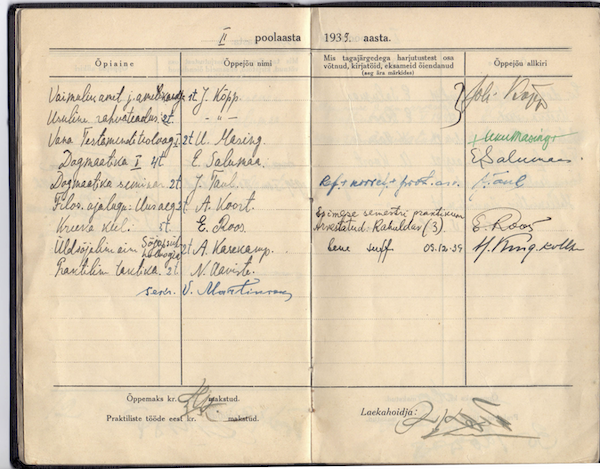 II poolaasta 1939. aasta.
Õpiaine
Õppejõu nimi
Mis tagajärgedega harjutustest osa
võtnud, kirjatöid, eksameid õiendanud
(aeg ära märkides)
Õppejõu allkiri
Vaimulik amet j. 2t. J. Kõpp. Joh. Kõpp
Usuline rahvateadus 2t. -"-
Vana Testamendi teoloogia I 2t U. Masing. + Uku Masing
Dogmaatika I 4t. E. Salumaa. E Salumaa
Dogmaatika seminar 2t J. Taul. Ref. + korref. + prot. J. Taul
Filos. ajalugu: Uusaeg 2t A. Koort.
Esimese semestri praktikum
Kreeka keel. 5t. E. Roos. Arvestatud: Rahuldav (3) E. Roos
Üldsõjaline ain Sõjapsühholoogia 2t A. Kasekamp. bene suff 09.12.39
Praktilin taktika 2t. N. Aaviste.
V. Martinson
Õppemaks kr. makstud.
Praktiliste tööde eest kr. makstud.
Laekahoidja: